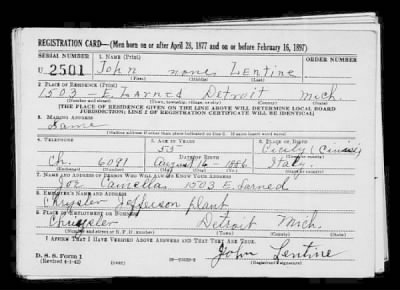 REGISTRATION CARD—(Men born on or after April 28, 1877 and on or before February 16, 1897)
SERIAL NUMBER 1. NAME (Print) ORDER NUMBER
U 2501 John none Lentine
(First) (Middle) (Last)
2. PLACE OF RESIDENCE (Print)
1503 - E. Larned Detroit Mich.
(Number and street) (Town, township, village, or city) (County) (State)
[THE PLACE OF RESIDENCE GIVEN ON THE LINE ABOVE WILL DETERMINE LOCAL BOARD
JURISDICTION; LINE 2 OF REGISTRATION CERTIFICATE WILL BE IDENTICAL]
3. MAILING ADDRESS
Same
[Mailing address if other than place indicated on line 2. If same insert word same]
4. TELEPHONE 5. AGE IN YEARS 6. PLACE OF BIRTH
55 Cicily
DATE OF BIRTH
Ch. 6091 August 16 - 1886 Italy.
7. NAME AND ADDRESS OF PERSON WHO WILL ALWAYS KNOW YOUR ADDRESS
Joe 1503 E. Larned
8. EMPLOYER'S NAME AND ADDRESS
Chrysler Jefferson plant
9. PLACE OF EMPLOYMENT OR BUSINESS
Chrysler Detroit Mich.
(Number and street or R. F. D. number) (Town) (County) (State)
I AFFIRM THAT I HAVE VERIFIED ABOVE ANSWERS AND THAT THEY ARE TRUE.
D. S. S. Form 1
(Revised 4-1-42) (over)
John Lentine
(Registrant's signature)